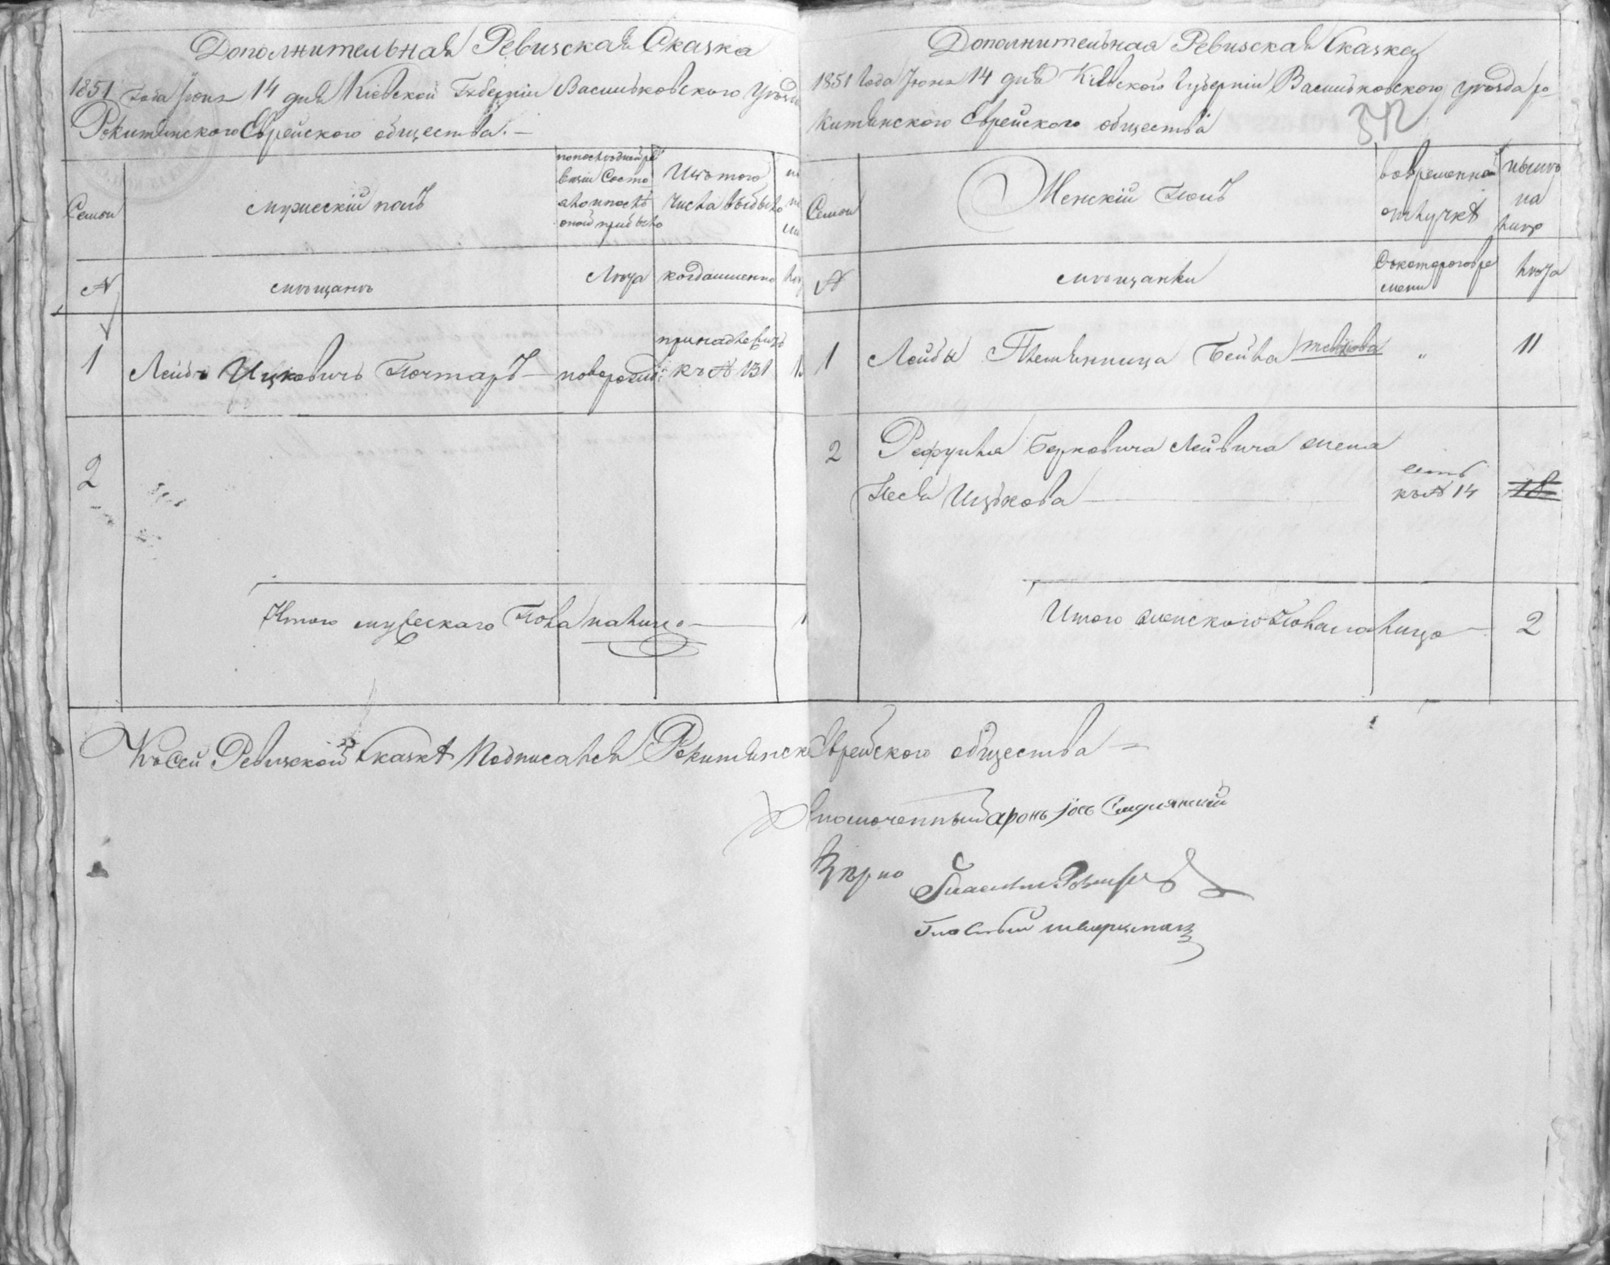 Дополнительная Ревизская Сказка
1851 года Июня 14 дня Кіевской Губерніи Васильковского уезда
Рокитянского Еврейского общества.
Семьи
мужескій полъ
по последней ре
визіи Состо
яло и после
оной прибыло
Изъ того
Числа выбыло
№
мещане
Лета
когда именно
1
Лейба Ицковичъ Почтаръ
новорожд:
принадлежитъ
къ № 131
2
Итого мужескаго Пола на лицо
1
Дополнительная Ревизская Сказка
1851 Года Июня 14 дня Кіевского Губерніи Васильковского уезда Ро
китянского Еврейского общества
372
Семьи
Женскій Полъ
во временной
отлучкѣ
ныне
на
лицо
№
мещанки
Съ которого вре
мени
лета
1
Лейбы Племянница Бейла "
11
2
Рефуила Берковича Лейвича жена
Песя Ицкова
есть
къ № 14
18
Итого женского Пола на лицо
2
К сей Ревизской сказкѣ Подписался Рокитянск Еврейского общества
Уполномоченный Аронъ Іось
Верно
Гласный